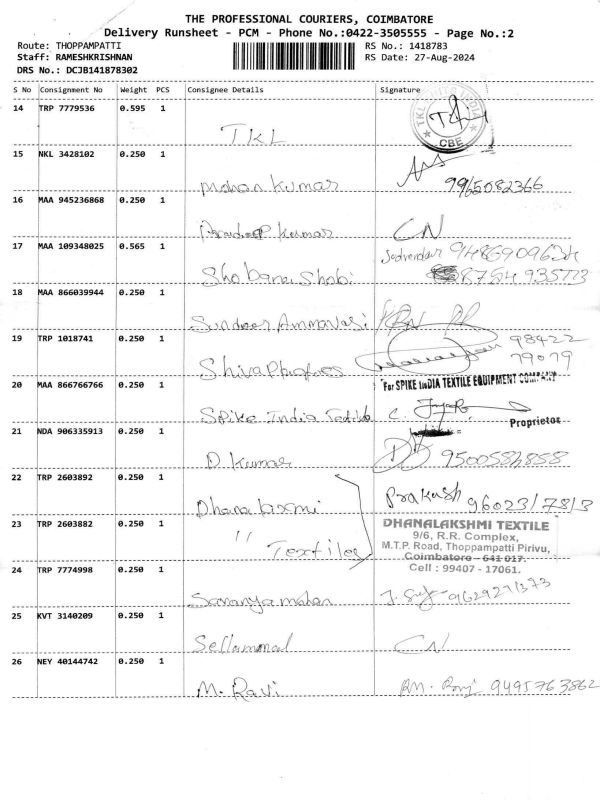 THE PROFESSIONAL COURIERS, COIMBATORE
Delivery Runsheet - PCM - Phone No.:0422-3505555 - Page No.:2
Route: THOPPAMPATTI RS No.: 1418783
Staff: RAMESHKRISHNAN RS Date: 27-Aug-2024
DRS No.: DCJB141878302
S No Consignment No Weight PCS Consignee Details Signature
14 TRP 7779536 0.595 1 TKL CBE
15 NKL 3428102 0.250 1 Mohan Kumar 9965082366
16 MAA 945236868 0.250 1 Pradeep Kumar CN
17 MAA 109348025 0.565 1 Shobana Shobi
18 MAA 866039944 0.250 1 Sundeer Ammavasi
19 TRP 1018741 0.250 1 98422
79079
20 MAA 866766766 0.250 1 Spike India Textile For SPIKE InDIA TEXTILE EQUIPMENT COMPANY
Proprietor
21 NDA 906335913 0.250 1 D. Kumar
22 TRP 2603892 0.250 1 Dhana laxmi Prakash
23 TRP 2603882 0.250 1 " Textiles DHANALAKSHMI TEXTILE
9/6, R.R. Complex,
M.T.P. Road, Thoppampatti Pirivu,
Coimbatore - 641 017.
Cell : 99407 - 17061.
24 TRP 7774998 0.250 1 Saranya mohan 9629271373
25 KVT 3140209 0.250 1 Sellammal CN
26 NEY 40144742 0.250 1 M. Ravi 9495763862